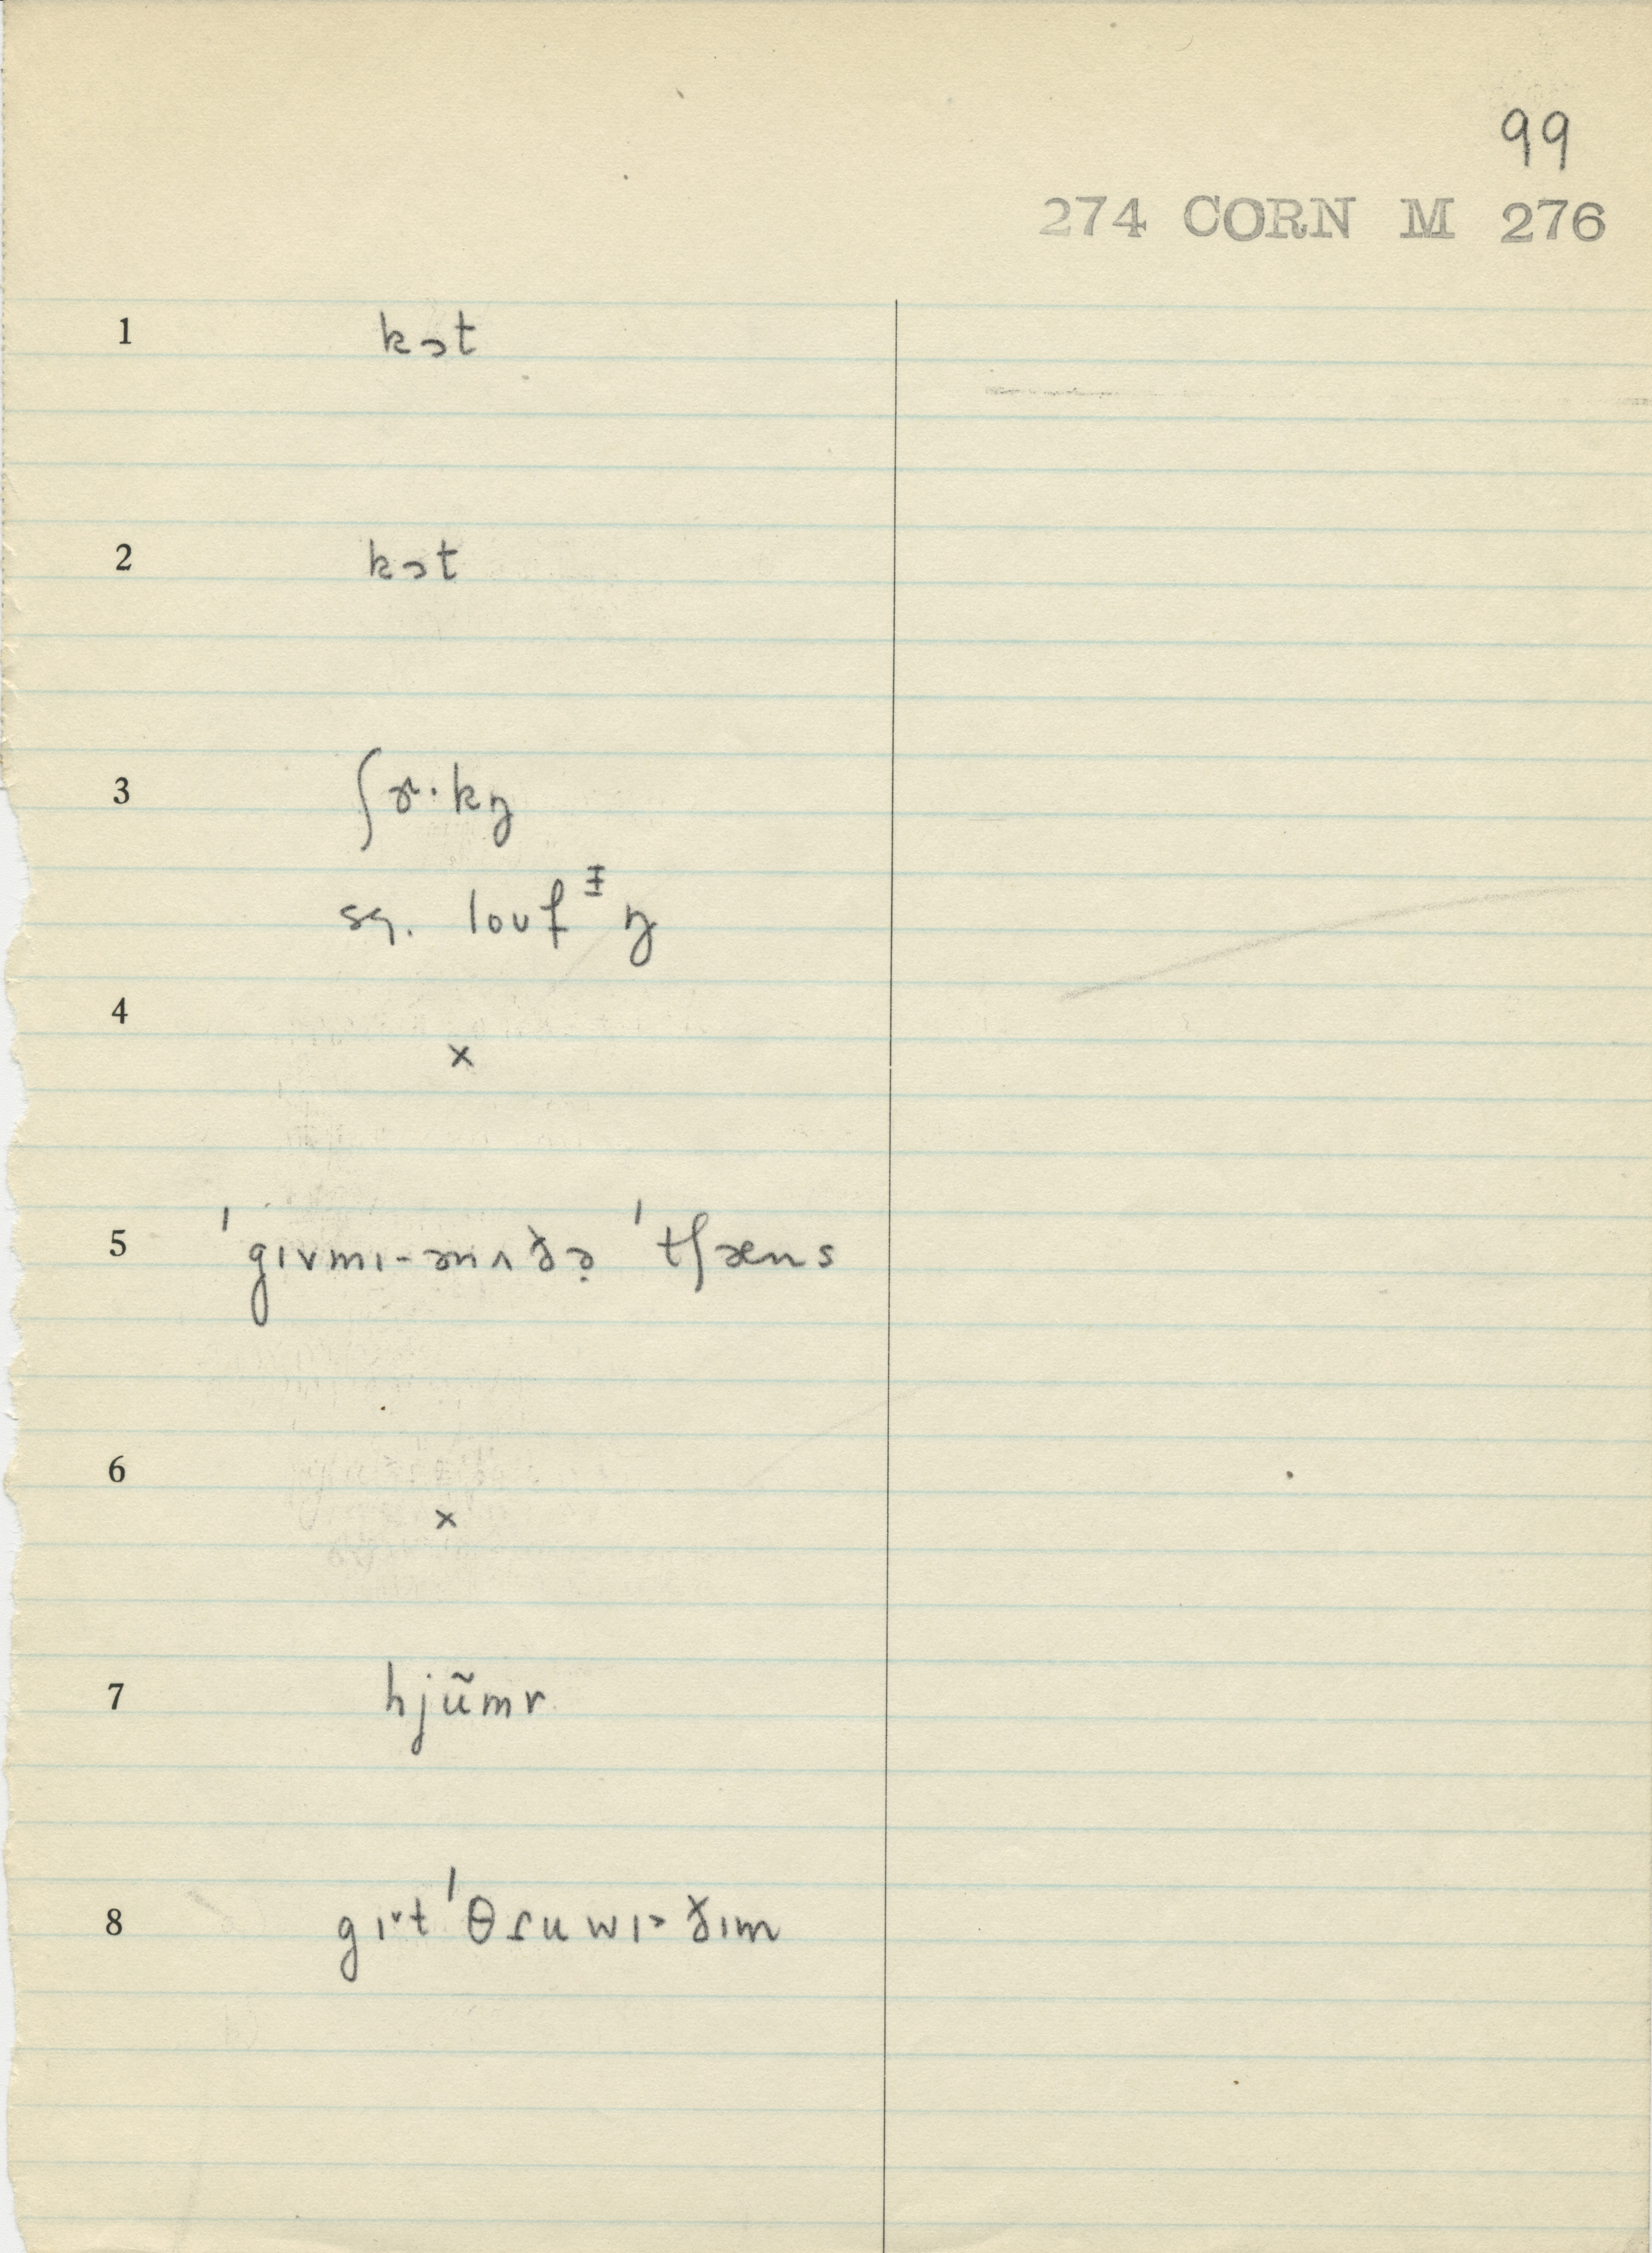 99
274 CORN M 276
1 kɔt
2 kɔt
3 ʃɚ·kŋ
sq. loʊfᵻŋ
4 ×
5 ˈgɪvmɪ-ənʌðə̣ ˈtʃæns
6 ×
7 hjũmr
8 gɪˇt ˈθɾuwɪ˃ ðɪm